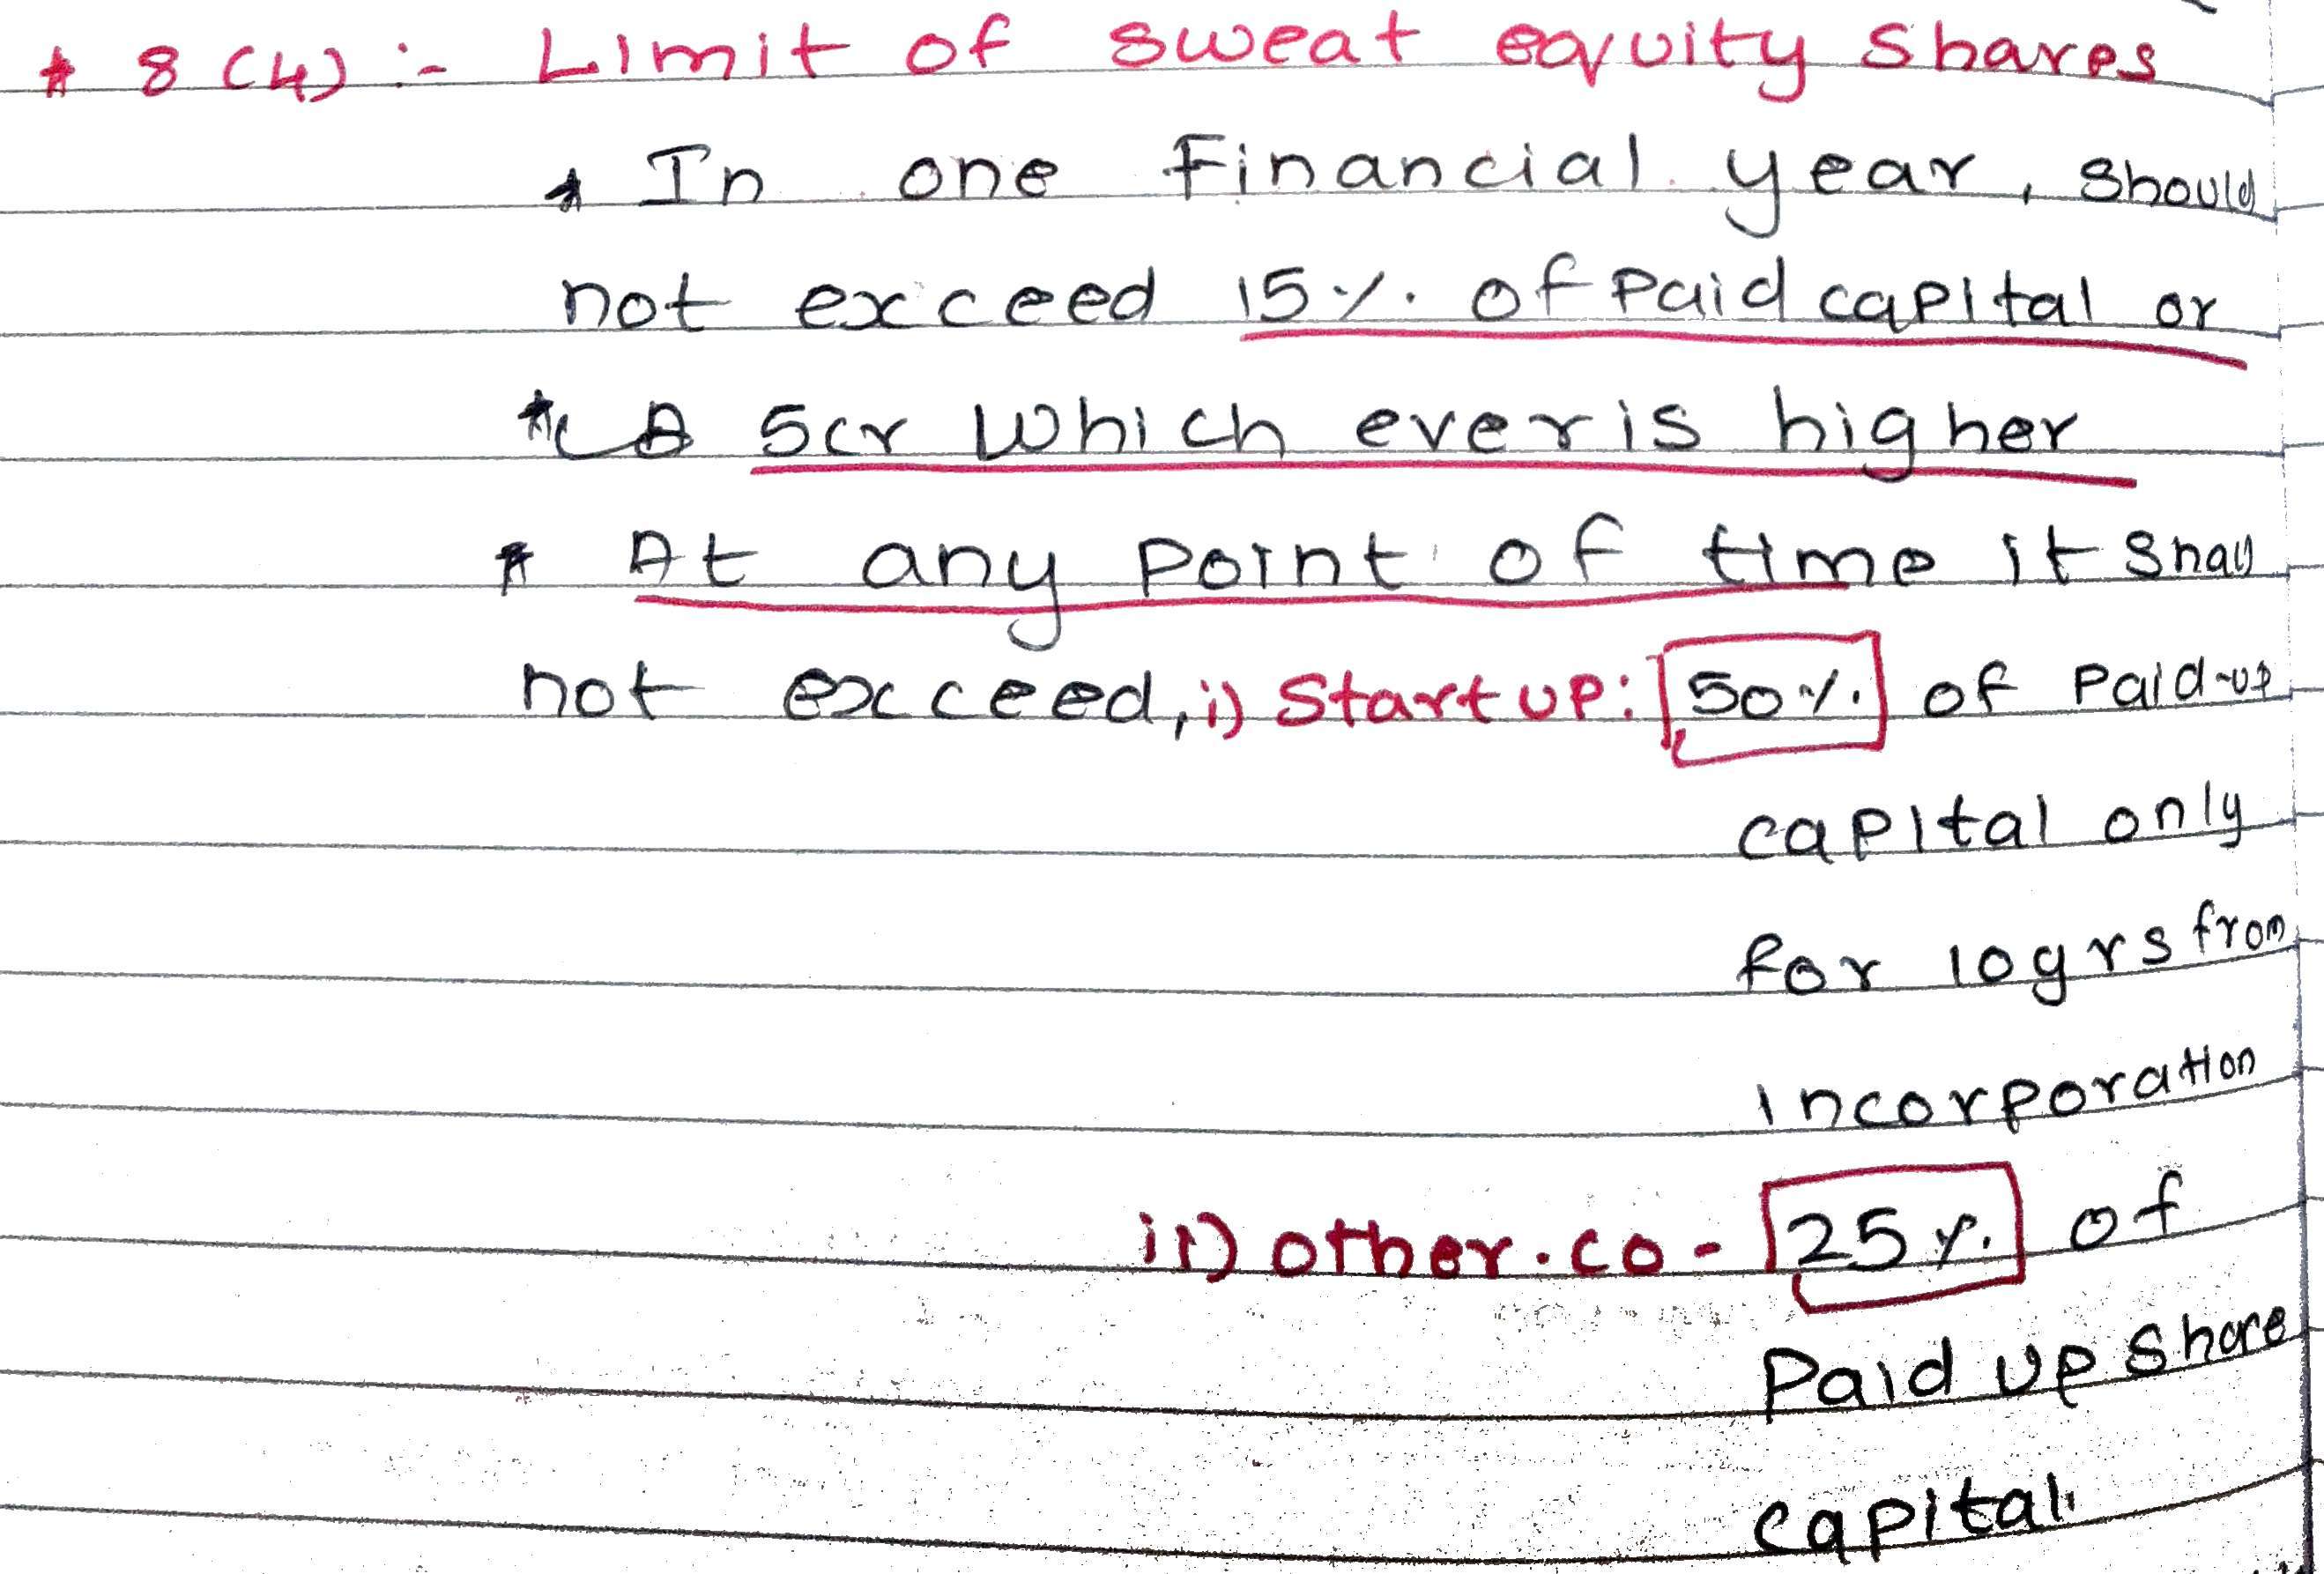 * 8 (4) :- Limit of sweat equity shares
* In one Financial year, should
not exceed 15%. of Paid capital or
* 5cr which ever is higher
* At any point of time it shall
not exceed, i) Start up: 50%. of Paid-up
capital only
for 10 yrs from
incorporation
ii) other.co - 25%. of
Paid up share
capital.